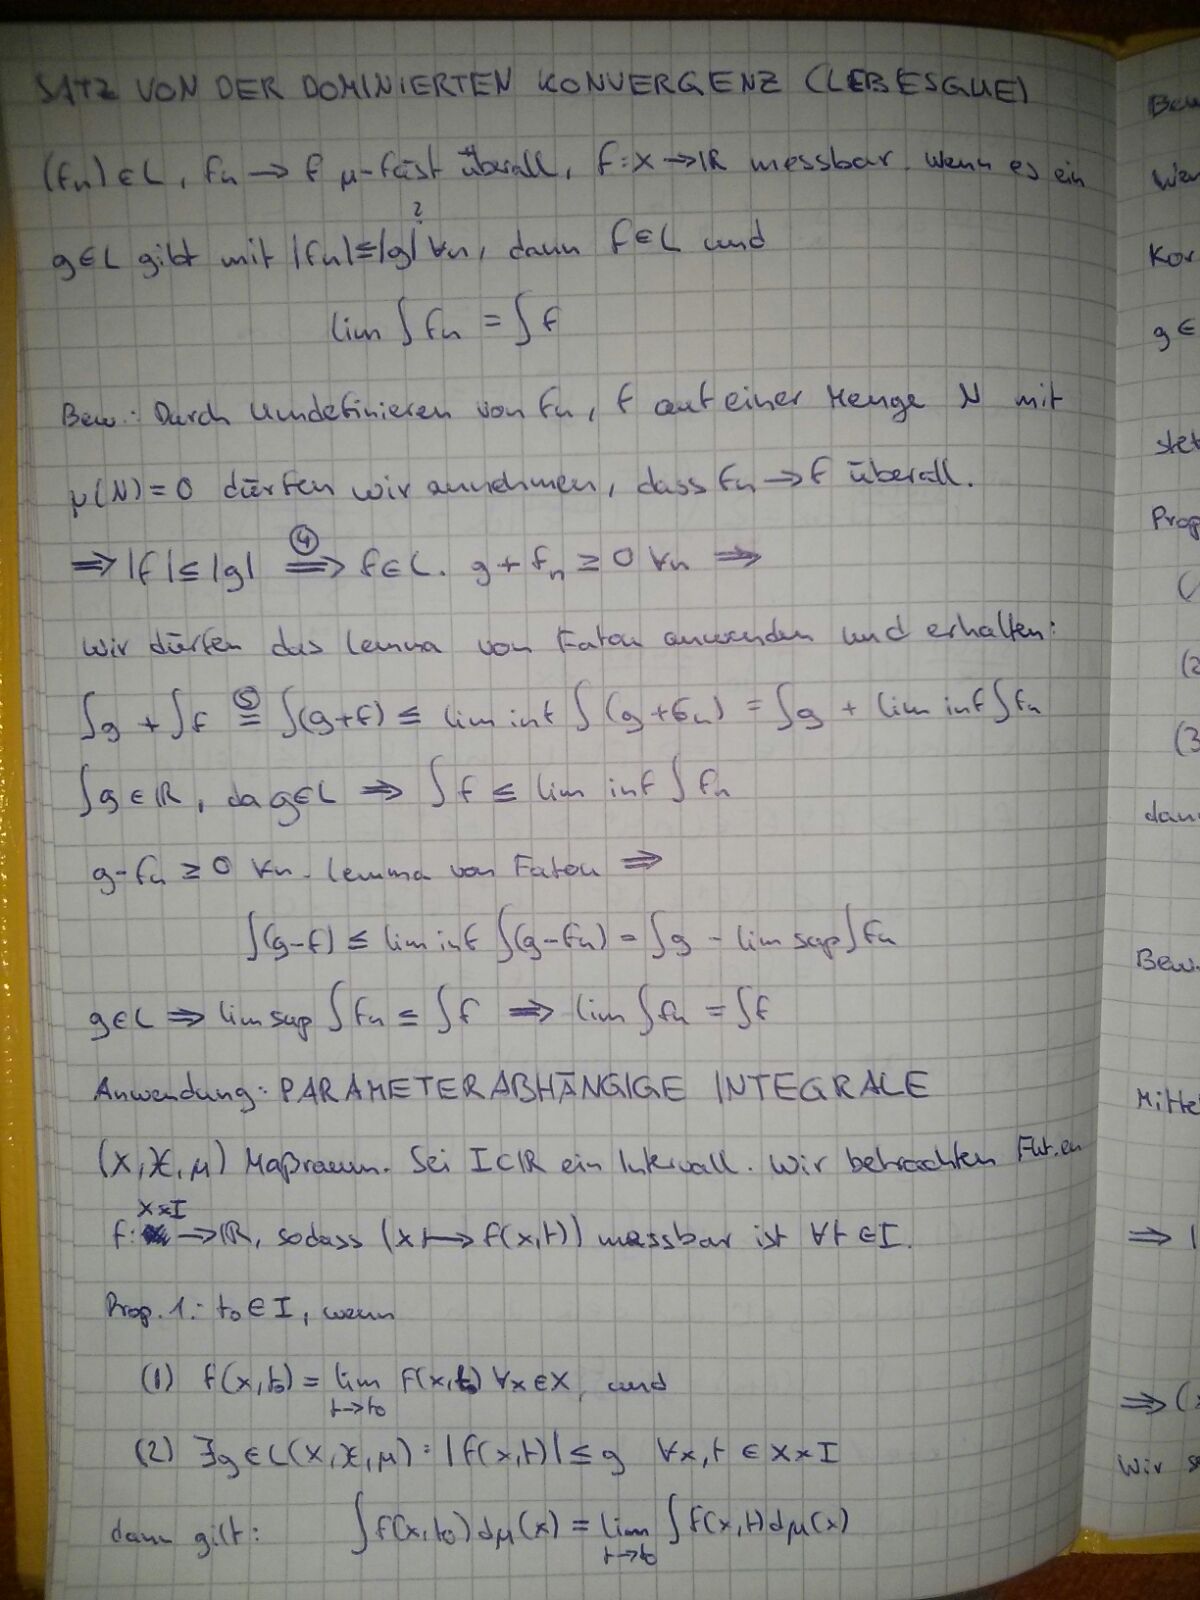 SATZ VON DER DOMINIERTEN KONVERGENZ (LEBESGUE)
(fn) ∈ L, fn → f μ-fast überall, f: X → ℝ messbar. Wenn es ein
?
g ∈ L gibt mit |fn| ≤ |g| ∀n, dann f ∈ L und
lim ∫ fn = ∫ f
Bew.: Durch Umdefinieren von fn, f auf einer Menge N mit
μ(N) = 0 dürfen wir annehmen, dass fn → f überall.
⇒ |f| ≤ |g| ④⇒ f ∈ L. g + fn ≥ 0 ∀n ⇒
wir dürfen das Lemma von Fatou anwenden und erhalten:
∫g + ∫f ⑤= ∫(g+f) ≤ lim inf ∫(g+fn) = ∫g + lim inf ∫fn
∫g ∈ ℝ, da g∈L ⇒ ∫f ≤ lim inf ∫fn
g-fn ≥ 0 ∀n. Lemma von Fatou ⇒
∫(g-f) ≤ lim inf ∫(g-fn) = ∫g - lim sup ∫fn
g∈L ⇒ lim sup ∫fn ≤ ∫f ⇒ lim ∫fn = ∫f
Anwendung: PARAMETERABHÄNGIGE INTEGRALE
(X, 𝒳, μ) Maßraum. Sei I⊂ℝ ein Intervall. Wir betrachten Fkt.en
X×I
f: → ℝ, sodass (x ↦ f(x,t)) messbar ist ∀t ∈ I.
Prop. 1.: t₀ ∈ I, wenn
(1) f(x,t₀) = lim f(x,t) ∀x ∈ X, und
t→t₀
(2) ∃g ∈ L(X, 𝒳, μ) : |f(x,t)| ≤ g ∀x,t ∈ X×I
dann gilt: ∫f(x,t₀) dμ(x) = lim ∫f(x,t) dμ(x)
t→t₀
Bew
Wen
Kor
g ∈
stet
Prop
(2
(3
dann
Bew.
Mitte
⇒ |
⇒ (
Wir s